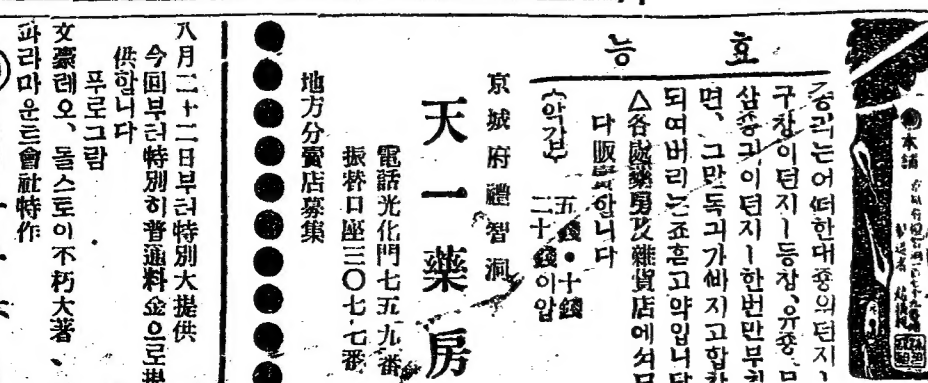 효능
종긔는어떠한대종의던지ㅣ
구창이던지ㅣ등창、유종、
삼종긔이던지ㅣ한번만부치
면、그만독긔가빠지고합창
되여버리는죠흔고약입니다
△各處藥房及雜貨店에서모
다販賣합니다
(약갑) 五錢•十錢
二十錢이암
京城府禮智洞
天一藥房
電話光化門七五九番
振替口座三〇七七番
地方分賣店募集
八月二十二日부터特別大提供
今回부터特別히普通料金으로提
供합니다
푸로그람
文豪레오、돌스토이不朽大著、
파라마운트會社特作
本舖